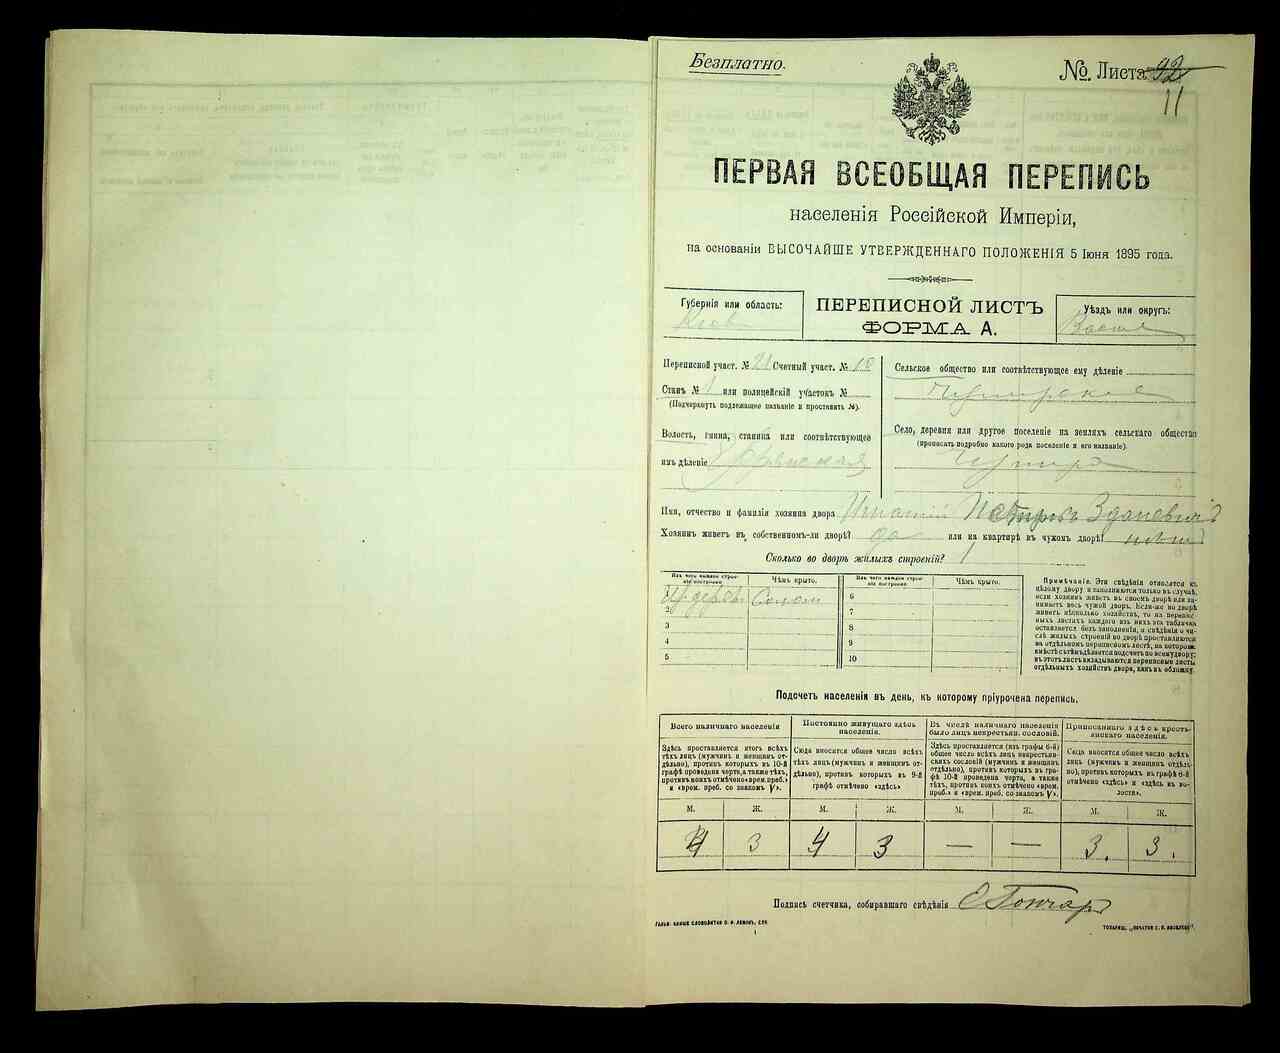 Безплатно.
№. Листа 92
11
ПЕРВАЯ ВСЕОБЩАЯ ПЕРЕПИСЬ
населенія Россійской Имперіи,
на основаніи ВЫСОЧАЙШЕ УТВЕРЖДЕННАГО ПОЛОЖЕНІЯ 5 Іюня 1895 года.
Губернія или область:
Киев
ПЕРЕПИСНОЙ ЛИСТЪ
ФОРМА А.
Уѣздъ или округъ:
Переписной участ. № 21 Счетный участ. № 10
Станъ № 1 или полицейскій участокъ №
(Подчеркнуть подлежащее названіе и проставить №).
Волость, гмина, станица или соотвѣтствующее
имъ дѣленіе
Сельское общество или соотвѣтствующее ему дѣленіе
Село, деревня или другое поселеніе на земляхъ сельскаго общества
(прописать подробно какого рода поселеніе и его названіе).
Имя, отчество и фамилія хозяина двора Игнатій Петровъ Здановичъ
Хозяинъ живетъ въ собственномъ-ли дворѣ? да или на квартирѣ въ чужомъ дворѣ?
Сколько во дворѣ жилыхъ строеній? 1
Изъ чего каждое строеніе построено.
Чѣмъ крыто.
Изъ чего каждое строеніе построено.
Чѣмъ крыто.
1 Солом
6
2
7
3
8
4
9
5
10
Примѣчаніе. Эти свѣдѣнія относятся къ
цѣлому двору и заполняются только въ случаѣ,
если хозяинъ живетъ въ своемъ дворѣ или за-
нимаетъ весь чужой дворъ. Если-же во дворѣ
живетъ нѣсколько хозяйствъ, то на перепис-
ныхъ листахъ каждаго изъ нихъ эта табличка
оставляется безъ заполненія, а свѣдѣнія о чи-
слѣ жилыхъ строеній во дворѣ проставляются
на отдѣльномъ переписномъ листѣ, на которомъ
вмѣстѣ съ тѣмъ дѣлается подсчетъ по всему двору;
въ этотъ листъ вкладываются переписные листы
отдѣльныхъ хозяйствъ двора, какъ въ обложку.
Подсчетъ населенія въ день, къ которому пріурочена перепись.
Всего наличнаго населенія
Здѣсь проставляется итогъ всѣхъ
тѣхъ лицъ (мужчинъ и женщинъ от-
дѣльно), противъ которыхъ въ 10-й
графѣ проведена черта, а также тѣхъ,
противъ коихъ отмѣчено «врем. преб.»
и «врем. преб. со знакомъ V».
Постоянно живущаго здѣсь
населенія.
Сюда вносится общее число всѣхъ
тѣхъ лицъ (мужчинъ и женщинъ от-
дѣльно), противъ которыхъ въ 9-й
графѣ отмѣчено «здѣсь»
Въ числѣ наличнаго населенія
было лицъ некрестьян. сословій.
Здѣсь проставляется (изъ графы 6-й)
общее число всѣхъ лицъ некрестьян-
скихъ сословій (мужчинъ и женщинъ
отдѣльно), противъ которыхъ въ гра-
фѣ 10-й проведена черта, а также
тѣхъ, противъ коихъ отмѣчено «врем.
преб.» и «врем. преб. со знакомъ V».
Приписаннаго здѣсь кресть-
янскаго населенія.
Сюда вносится общее число всѣхъ
лицъ (мужчинъ и женщинъ отдѣль-
но), противъ которыхъ въ графѣ 8-й
отмѣчено «здѣсь» и «здѣсь въ во-
лости».
М. Ж. М. Ж. М. Ж. М. Ж.
4 3 4 3 — — 3. 3.
Подпись счетчика, собиравшаго свѣдѣнія С Гончаръ